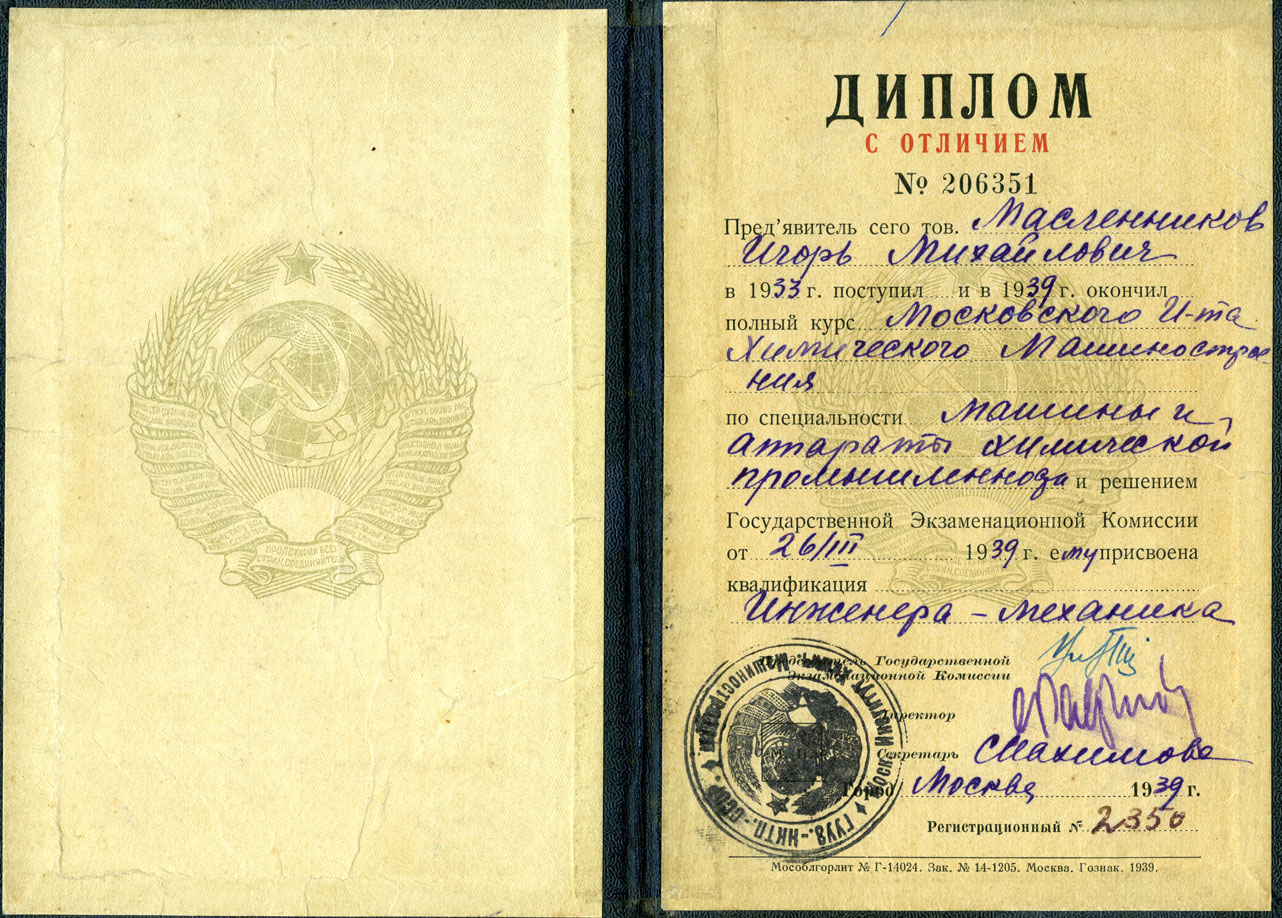 ПРОЛЕТАРИИ ВСЕХ
СТРАН, СОЕДИНЯЙТЕСЬ
ДИПЛОМ
С ОТЛИЧИЕМ
№ 206351
Пред'явитель сего тов. Масленников
Игорь Михайлович
в 1933 г. поступил и в 1939 г. окончил
полный курс Московского И-та
Химического Машиностроения
по специальности Машины и
аппараты химической
промышленности и решением
Государственной Экзаменационной Комиссии
от 26/III 1939 г. ему присвоена
квалификация
Инженера - механика
Председатель Государственной
Экзаменационной Комиссии
Директор
Секретарь СМахимова
Город Москва 1939 г.
Регистрационный № 2350
Мособлгорлит № Г-14024. Зак. № 14-1205. Москва. Гознак. 1939.
ГУУЗ.-НКТП.-СССР. Моск. Институт Химич. Машиностроения